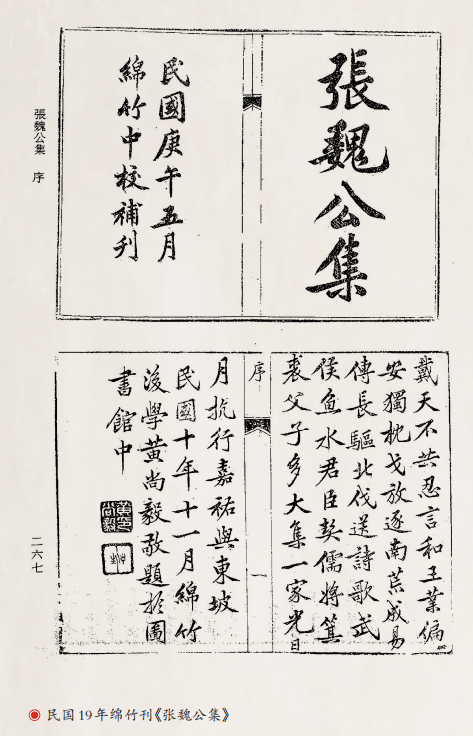 張魏公集
民國庚午五月
綿竹中校補刊
張魏公集 序
戴天不共忍言和王業偏
安獨枕戈放逐南荒成易
傳長驅北伐送詩歌武
侯魚水君臣契儒將箕
裘父子多大集一家光日
序 一
月抗行嘉祐與東坡
民國十年十一月綿竹
後學黃尚毅敬題於圖
書館中
二六七
民国19年绵竹刊《张魏公集》